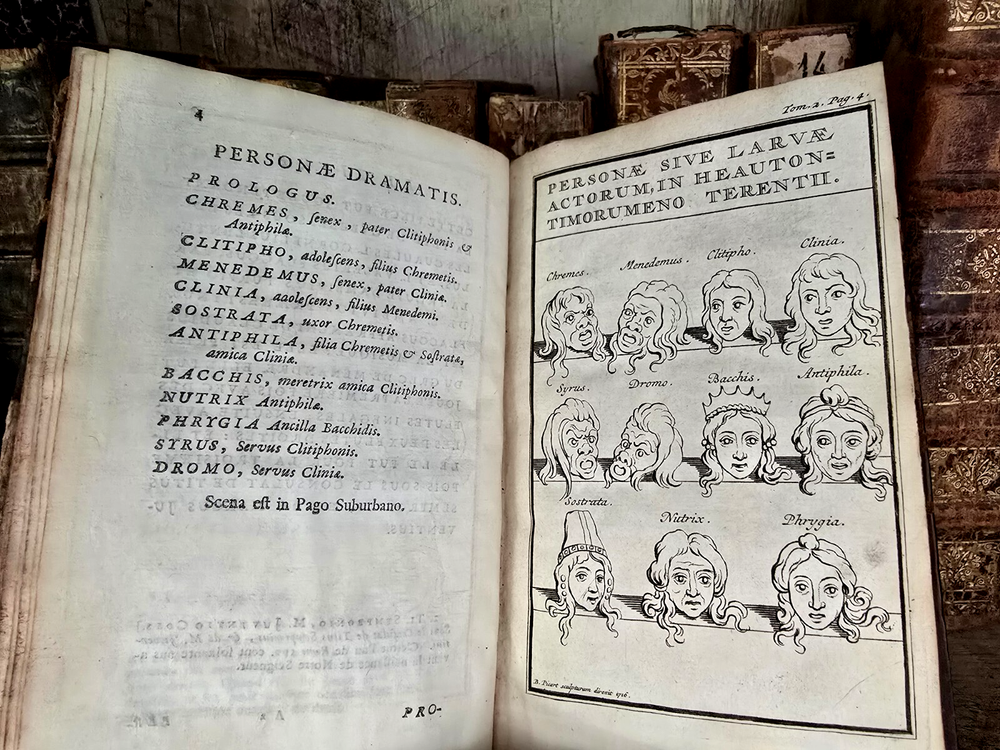 4
PERSONÆ DRAMATIS.
PROLOGUS.
CHREMES, ſenex, pater Clitiphonis &
Antiphilæ.
CLITIPHO, adoleſcens, filius Chremetis.
MENEDEMUS, ſenex, pater Cliniæ.
CLINIA, aaoleſcens, filius Menedemi.
SOSTRATA, uxor Chremetis.
ANTIPHILA, filia Chremetis & Soſtratæ,
amica Cliniæ.
BACCHIS, meretrix amica Clitiphonis.
NUTRIX Antiphilæ.
PHRYGIA Ancilla Bacchidis.
SYRUS, Servus Clitiphonis.
DROMO, Servus Cliniæ.
Scena eſt in Pago Suburbano.
PRO-
Tom. 2. Pag. 4.
PERSONÆ SIVE LARVÆ
ACTORUM, IN HEAUTON=
TIMORUMENO TERENTII.
Chremes. Menedemus. Clitipho. Clinia.
Syrus. Dromo. Bacchis. Antiphila.
Sostrata. Nutrix. Phrygia.
B. Picart sculpturam direxit 1716.
14